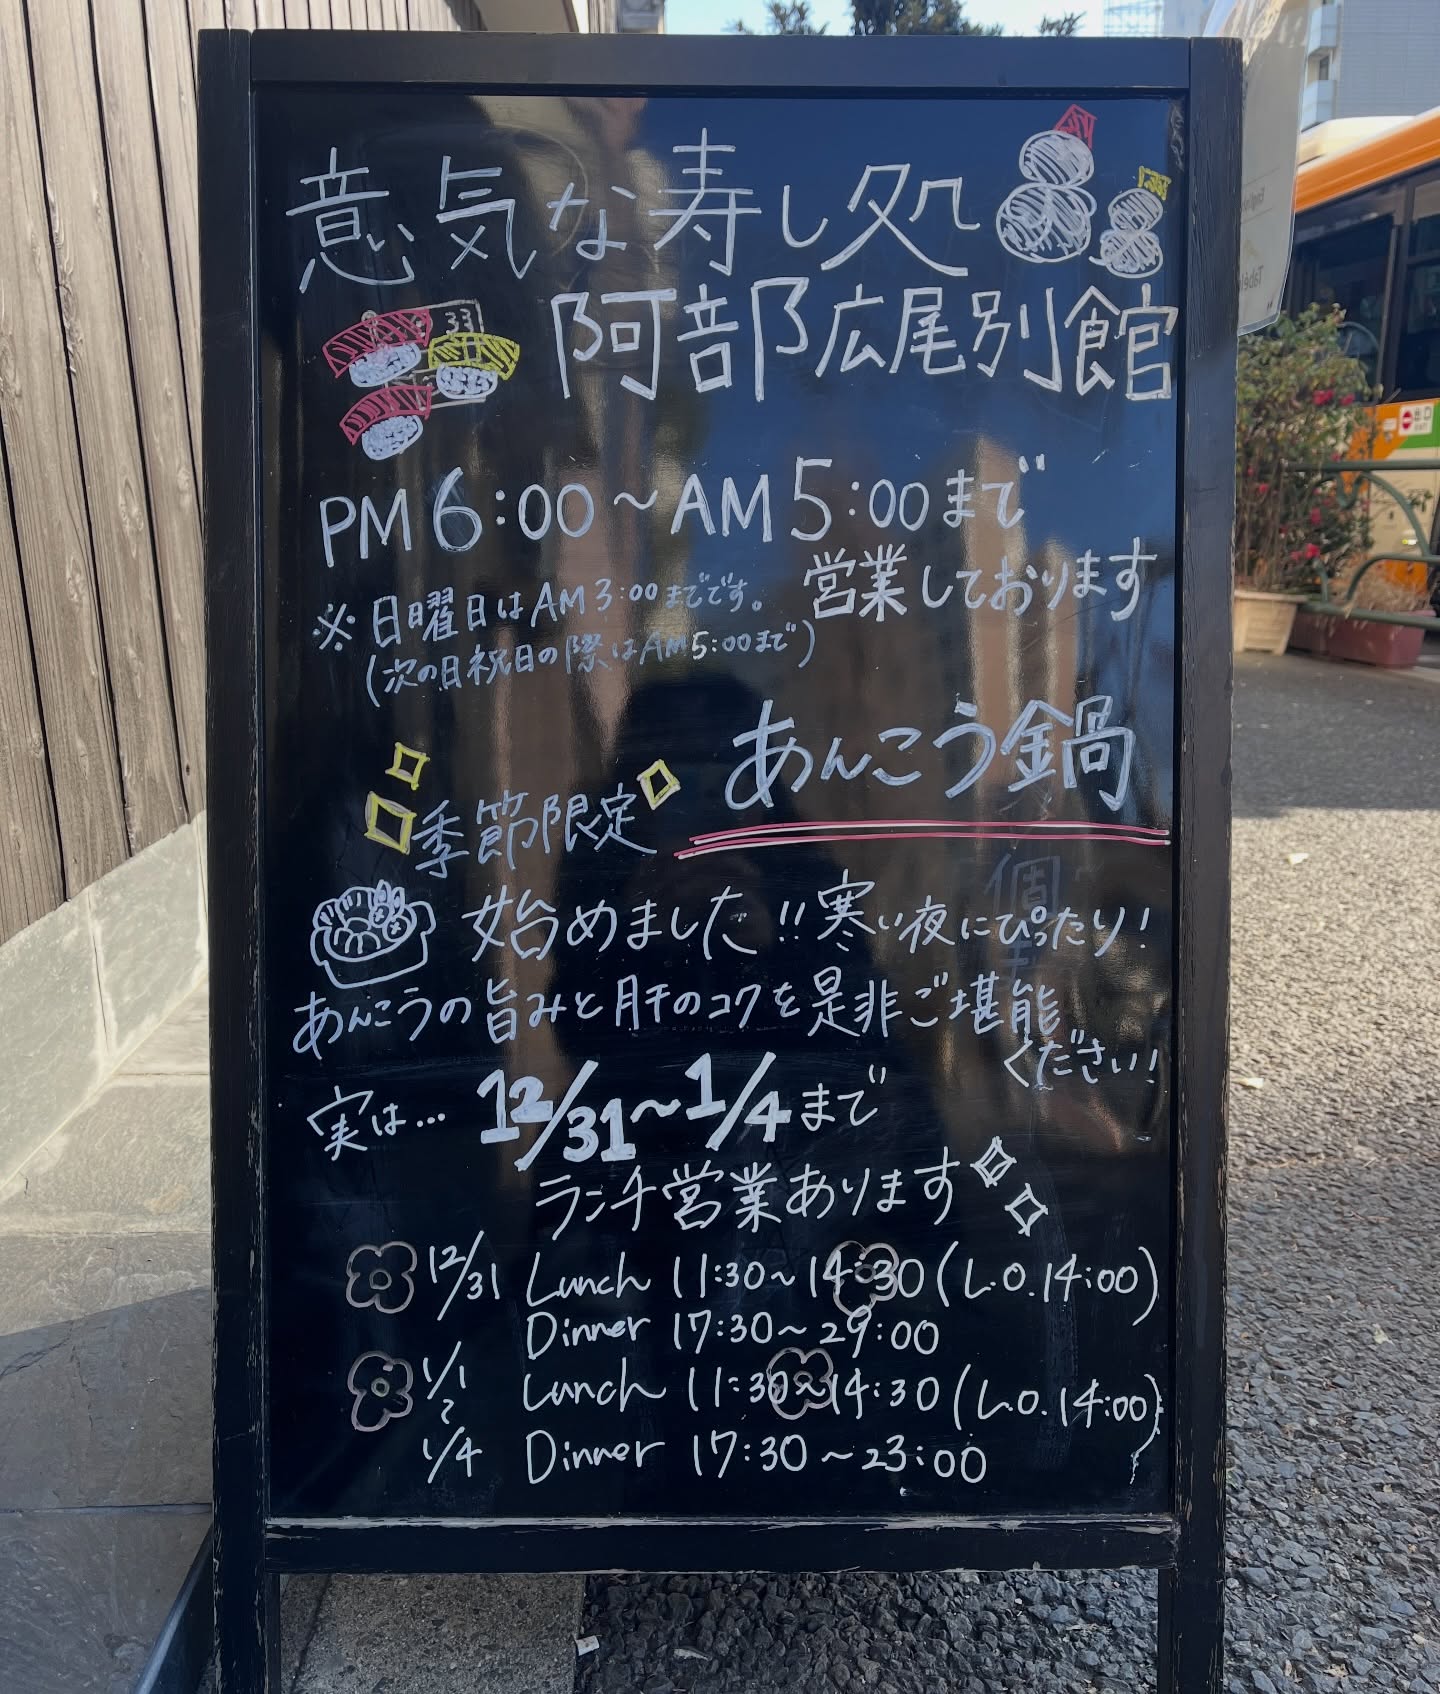 意気な寿し処
阿部広尾別館
PM 6:00～AM 5:00まで
営業しております
※日曜日はAM 3:00までです。
(次の日祝日の際はAM 5:00まで)
季節限定
あんこう鍋
始めました!! 寒い夜にぴったり!
あんこうの旨みと肝のコクを是非ご堪能
ください!
実は… 12/31～1/4まで
ランチ営業あります
12/31 Lunch 11:30～14:30 (L.O.14:00)
Dinner 17:30～29:00
1/1 Lunch 11:30～14:30 (L.O.14:00)
～
1/4 Dinner 17:30～23:00